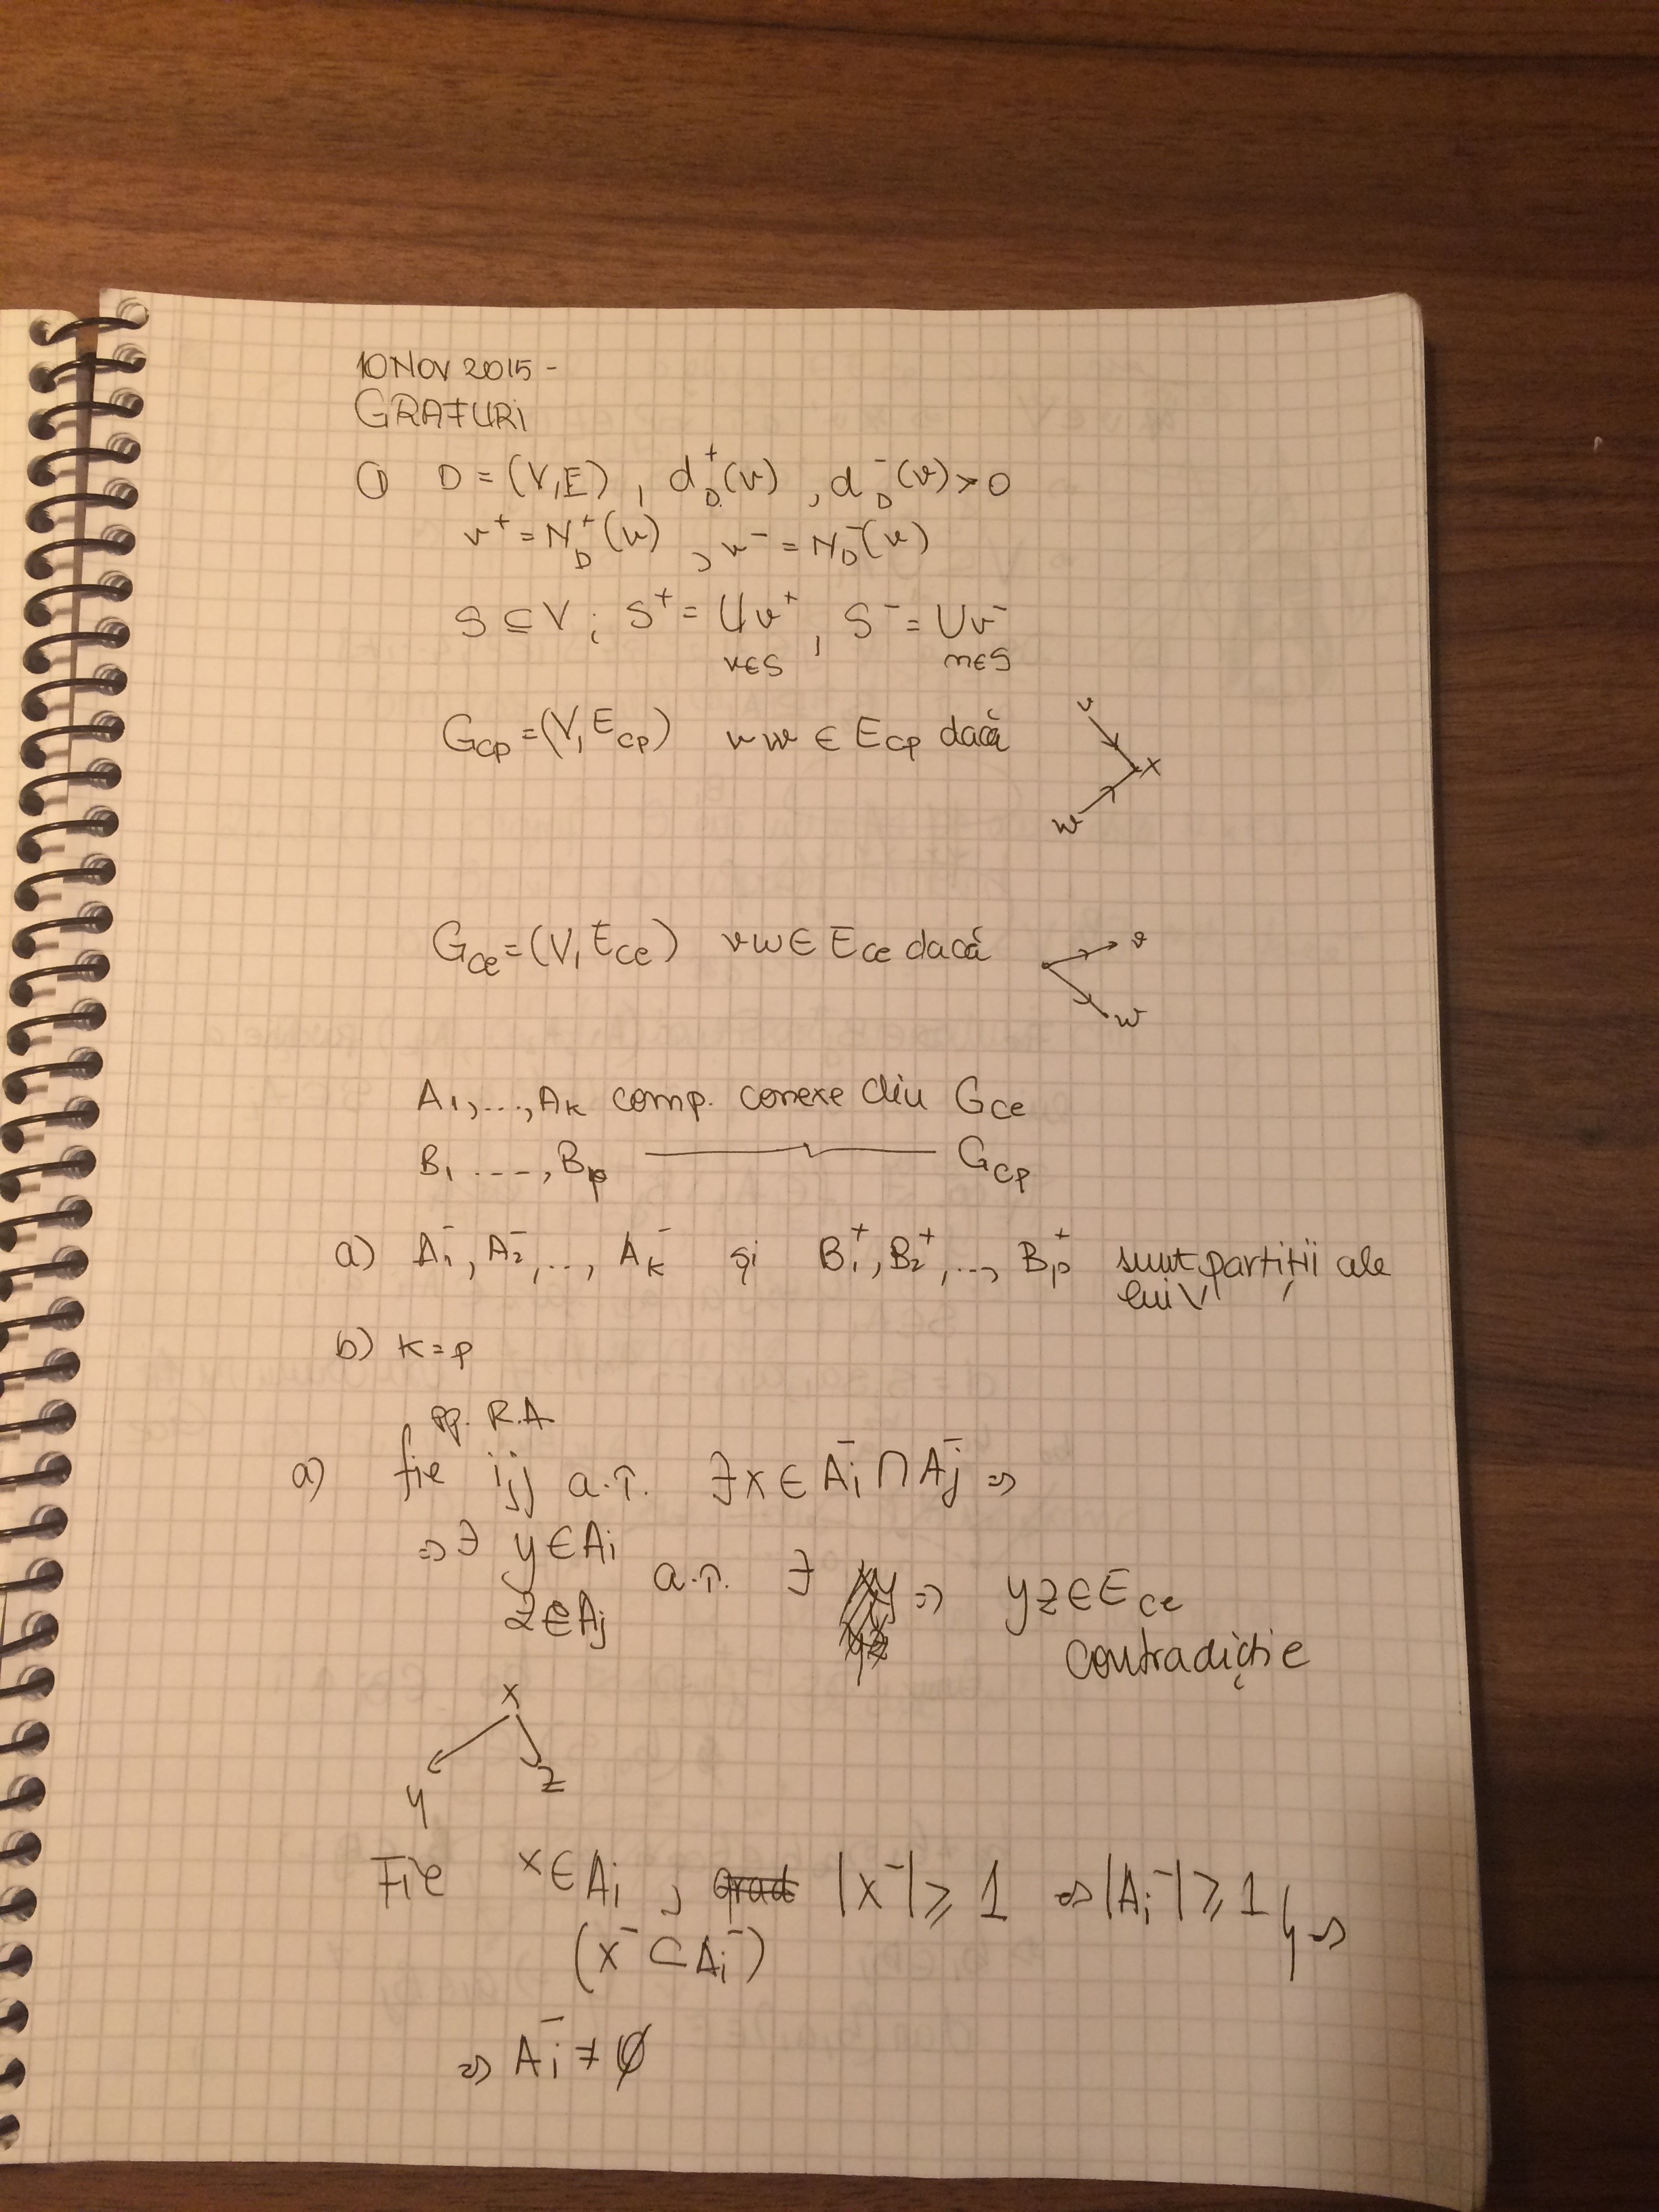 10 NOV 2015 -
GRAFURI
① D = (V, E) , d⁺_D(v) , d⁻_D(v) > 0
v⁺ = N⁺_D(v) , v⁻ = N⁻_D(v)
S ⊆ V ; S⁺ = ∪ v⁺ , S⁻ = ∪ v⁻
v∈S v∈S
G_cp = (V, E_cp) vw ∈ E_cp dacă
v
x
w
G_ce = (V, E_ce) vw ∈ E_ce dacă
v
w
A₁, ..., A_k comp. conexe din G_ce
B₁ ..., B_p ——— G_cp
a) A₁⁻, A₂⁻, ..., A_k⁻ și B₁⁺, B₂⁺, ..., B_p⁺ sunt partiții ale
lui V
b) k = p
pp. R.A.
a) fie i,j a.î. ∃ x ∈ A_i⁻ ∩ A_j⁻ ⇒
⇒ ∃ y ∈ A_i
z ∈ A_j a.î. ∃ ⇒ yz ∈ E_ce
contradicție
x
y z
Fie x ∈ A_i , grad |x⁻| ≥ 1 ⇒ |A_i⁻| ≥ 1 } ⇒
(x⁻ ⊂ A_i⁻)
⇒ A_i⁻ ≠ ∅